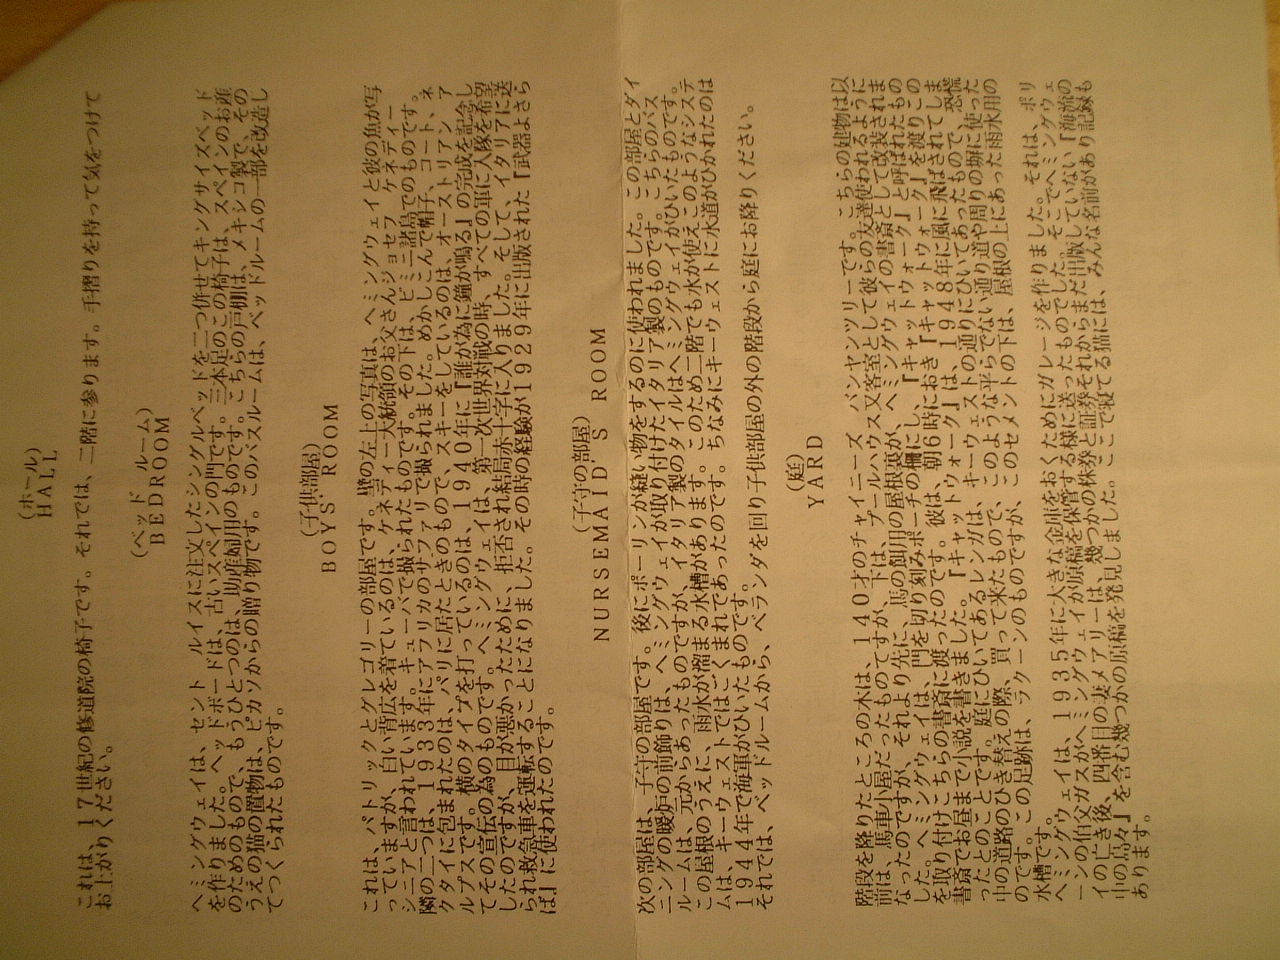 (ホール)
HALL
これは、17世紀の修道院の椅子です。それでは、二階に参ります。手摺りを持って気をつけて
お上がりください。
(ベッド ルーム)
BEDROOM
ヘミングウェイは、セント ルイスに注文したシングルベッドを二つ併せてキングサイズベッド
を作りました。ヘッドボードは、古いスペインの門です。三本足のこの椅子は、スペインのお産
のためのもので、もうひとつのは、助産婦用のものです。こちらの戸棚は、メキシコ製で、その
うえの猫の置物は、ピカソからの贈り物です。このバスルームは、ベッドルームの一部を改造し
てつくられたものです。
(子供部屋)
BOYS' ROOM
これは、パトリックとグレゴリーの部屋です。壁の左上の写真は、ヘミングウェイと彼の魚が写
っていますが、白い背広を着ているのは、ケネディー大統領のお父さんジョセフ ケネディー
シニアと言われています。キューバで撮られたものです。その下は、ビミニ諸島でのものです。
隣の二つは、1933年にアフリカのサファリで撮られました。めかしこんで帽子、コート、ネ
クタイに包まれたのは、パリに居たときのもので、スキーをしているのは、オーストリアン ア
ルプスです。横のタイプを打っているのは、1940年に『誰が為に鐘が鳴る』の完成を記念し
てその宣伝の為のものです。ヘミングウェイは、第一次世界対戦の時、すべての軍に入隊を希望
したのですが、目が悪かったために、拒否され結局赤十字に入りました。そして、イタリアに送
られ救急車を運転することになりました。その時の経験が1929年に出版された『武器よさら
ば』に使われたのです。
(子守の部屋)
NURSEMAID'S ROOM
次の部屋は、子守の部屋です。後にポーリンが縫い物をするのに使われました。この部屋とダイ
ニングの暖炉の前飾りは、ヘミングウェイが取り付けたイタリア製のものです。こちらのバス
ルームは、元からあったものですが、イタリア製のタイルはヘミングウェイがひいたものです。
この屋根のうえに、雨水が溜まる水槽があります。このため二階でも水が使えこのようなシステ
ムは、キーウェストではごくまれであったのです。ちなみにキーウェストに水道がひかれたのは
1944年で海軍がひいたものです。
それでは、ベッドルームから、ベランダを回り子供部屋の外の階段から庭にお降りください。
(庭)
YARD
階段を降りたところの木は、140才のチャイニーズ バンヤンツリーです。こちらの建物は以
前は、馬車小屋だったものですが、下は、プールハウス又客室として彼らの友達使われるように
なったのですが、それより先に、馬の飼用の屋根裏が、ヘミングウェイの書斎として改装されま
した。ヘミングウェイは、門を切り刻みポーチの柵にし、『キャットウォーク』と呼ばれたもの
を取り付けこちらの書斎に渡ったのです。彼は、朝6時におき『キャットウォーク』を渡りこの
書斎でお昼まで小説を書きました。『キャットウォーク』は、1948年に風に飛ばされてしま
ったとのことです。庭にひいてあるレンガは、キーウェストの通りにひいてあったもので、恐慌
中の道路のひき替えの際、買って来たもので、このような平らでない通り道や周りの塀に使った
のです。この足跡は、ラクーンのものですが、このセメントの下は、屋根の上にあった雨水用の
水槽です。
ヘミングウェイは、1935年に大きな金庫をおくためにガレージを作りました。それは、ポリ
ーンの伯父ガスがヘミングウェイが原稿を保管する様に送ったものでした。そこでヘミングウェ
イの亡き後、四番目の妻メアリーは、幾つかの株券と証券それからまだ出版していない『海流の
中の島々』を含む幾つかの原稿を発見しました。ここで寝てる猫には、みんな名前があり記録も
あります。